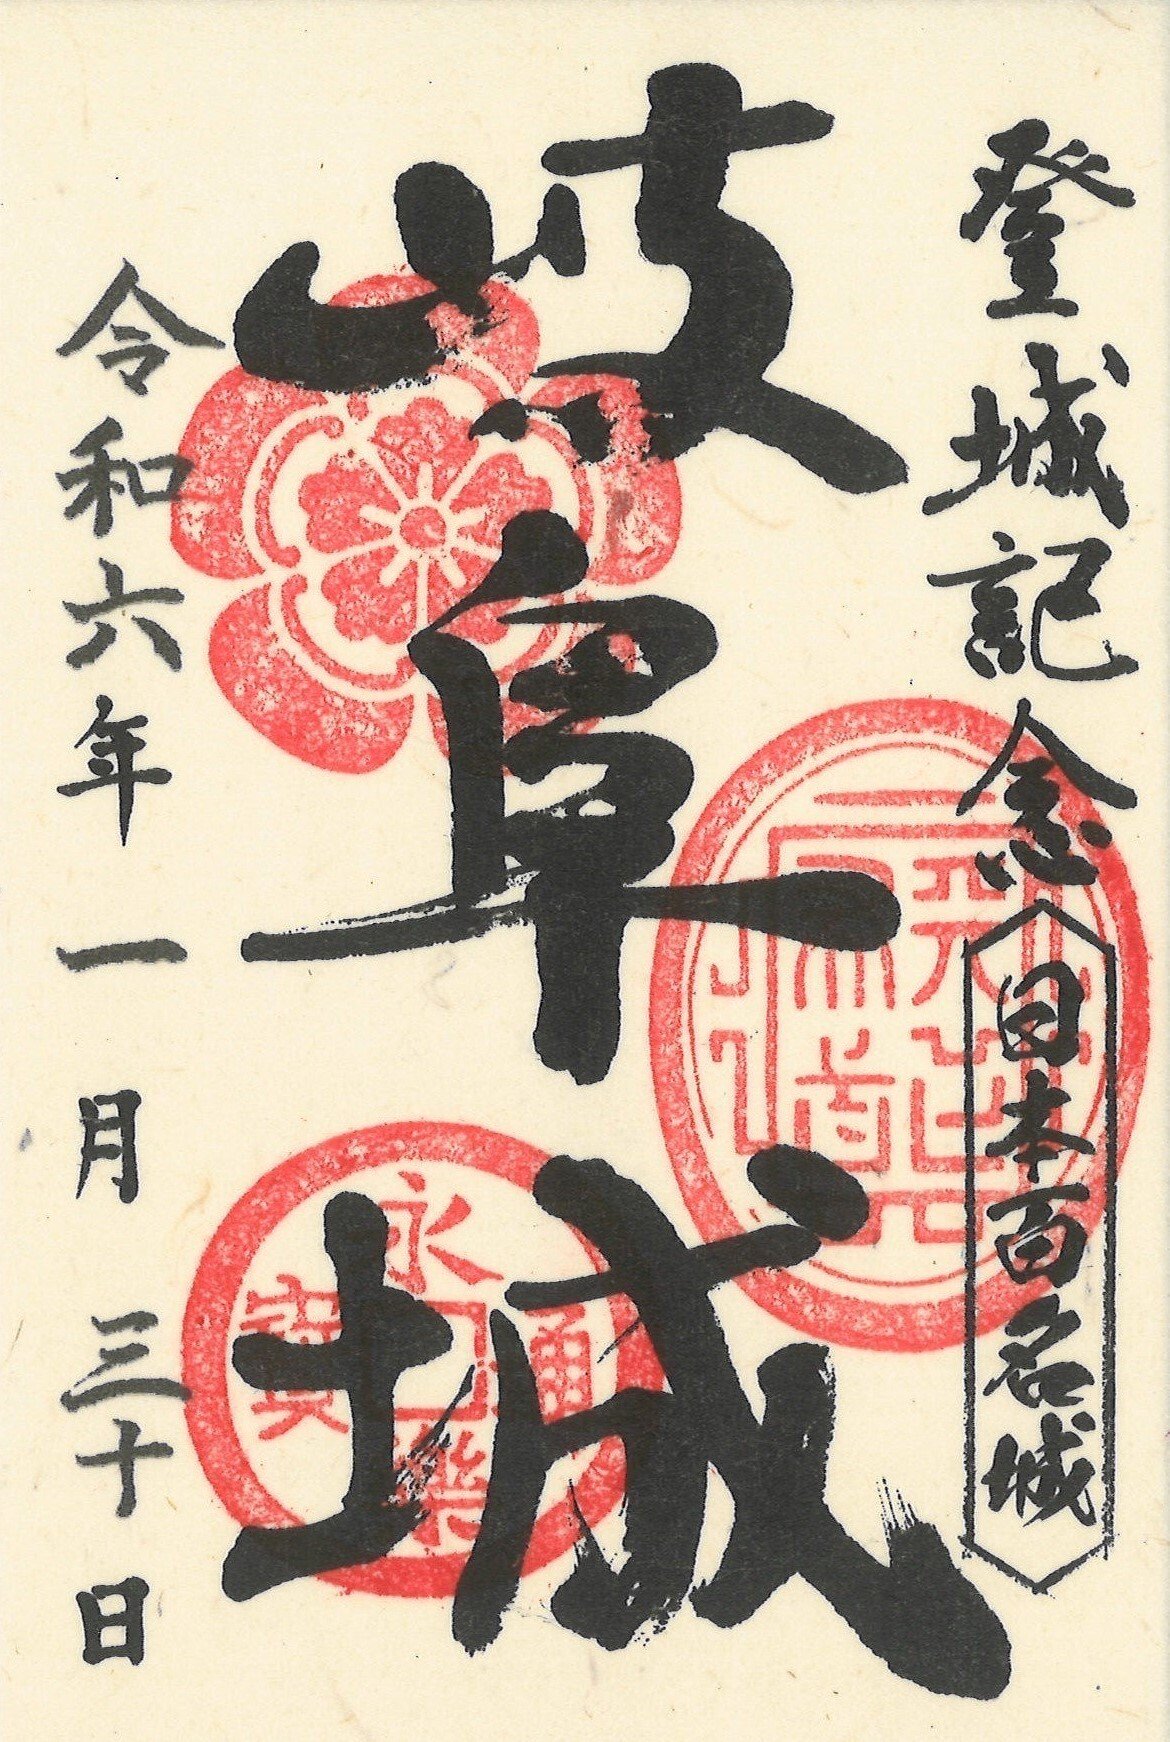 登城記念
日本百名城
岐阜城
令和六年一月三十日
永樂通寳
天下布武